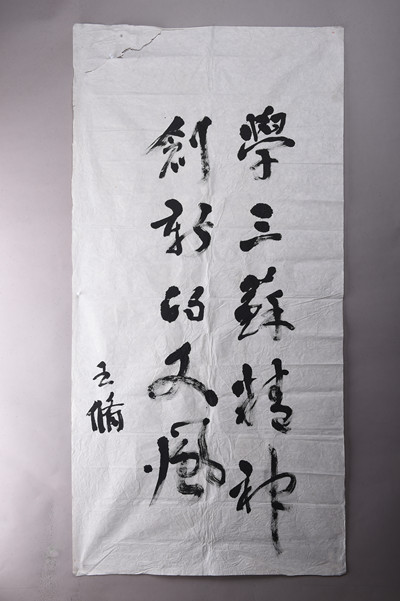 學三蘇精神
創新的文風
王脩